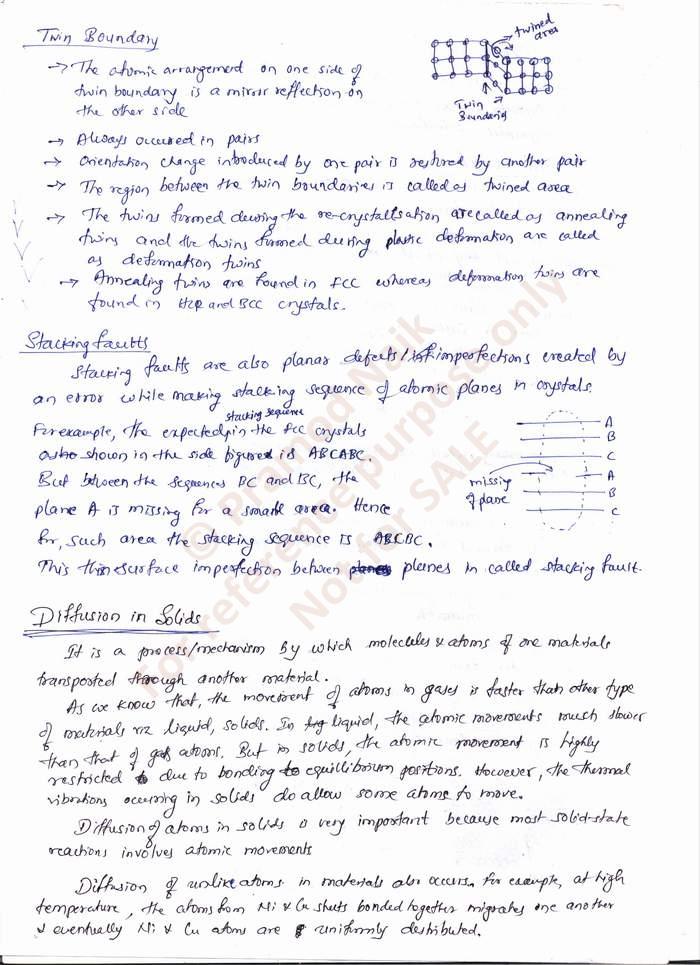 Twin Boundary
→ The atomic arrangement on one side of
twin boundary is a mirror reflection on
the other side
twined
area
Twin
Boundaries
→ Always occured in pairs
→ Orientation change introduced by one pair is restored by another pair
→ The region between the twin boundaries is called as twined area
→ The twins formed during the re-crystallisation are called as annealing
twins and the twins formed during plastic deformation are called
as deformation twins
→ Annealing twins are found in FCC whereas deformation twins are
found in HCP and BCC crystals.
Stacking faults
Stacking faults are also planar defects/imperfections created by
an error while making stacking sequence of atomic planes in crystals.
stacking sequence
For example, the expected in the fcc crystals
shown in the side figure is ABCABC.
But between the sequences BC and BC, the
plane A is missing for a small area. Hence
for, such area the stacking sequence is ABCBC.
This thin surface imperfection between planes in called stacking fault.
A
B
C
A
B
C
missing
of plane
Diffusion in Solids
It is a process/mechanism by which molecules & atoms of one materials
transported through another material.
As we know that, the movement of atoms in gases is faster than other type
of materials viz liquid, solids. In liquid, the atomic movements much slower
than that of gas atoms. But in solids, the atomic movement is highly
restricted due to bonding to equillibrium positions. However, the thermal
vibrations occuring in solids do allow some atoms to move.
Diffusion of atoms in solids is very important because most solid-state
reactions involves atomic movements
Diffusion of unlike atoms in materials also occurs. For example, at high
temperature, the atoms from Ni & Cu sheets bonded together migrates one another
& eventually Ni & Cu atoms are uniformly destributed.
© Pramod Naik
For reference purpose only
Not for SALE